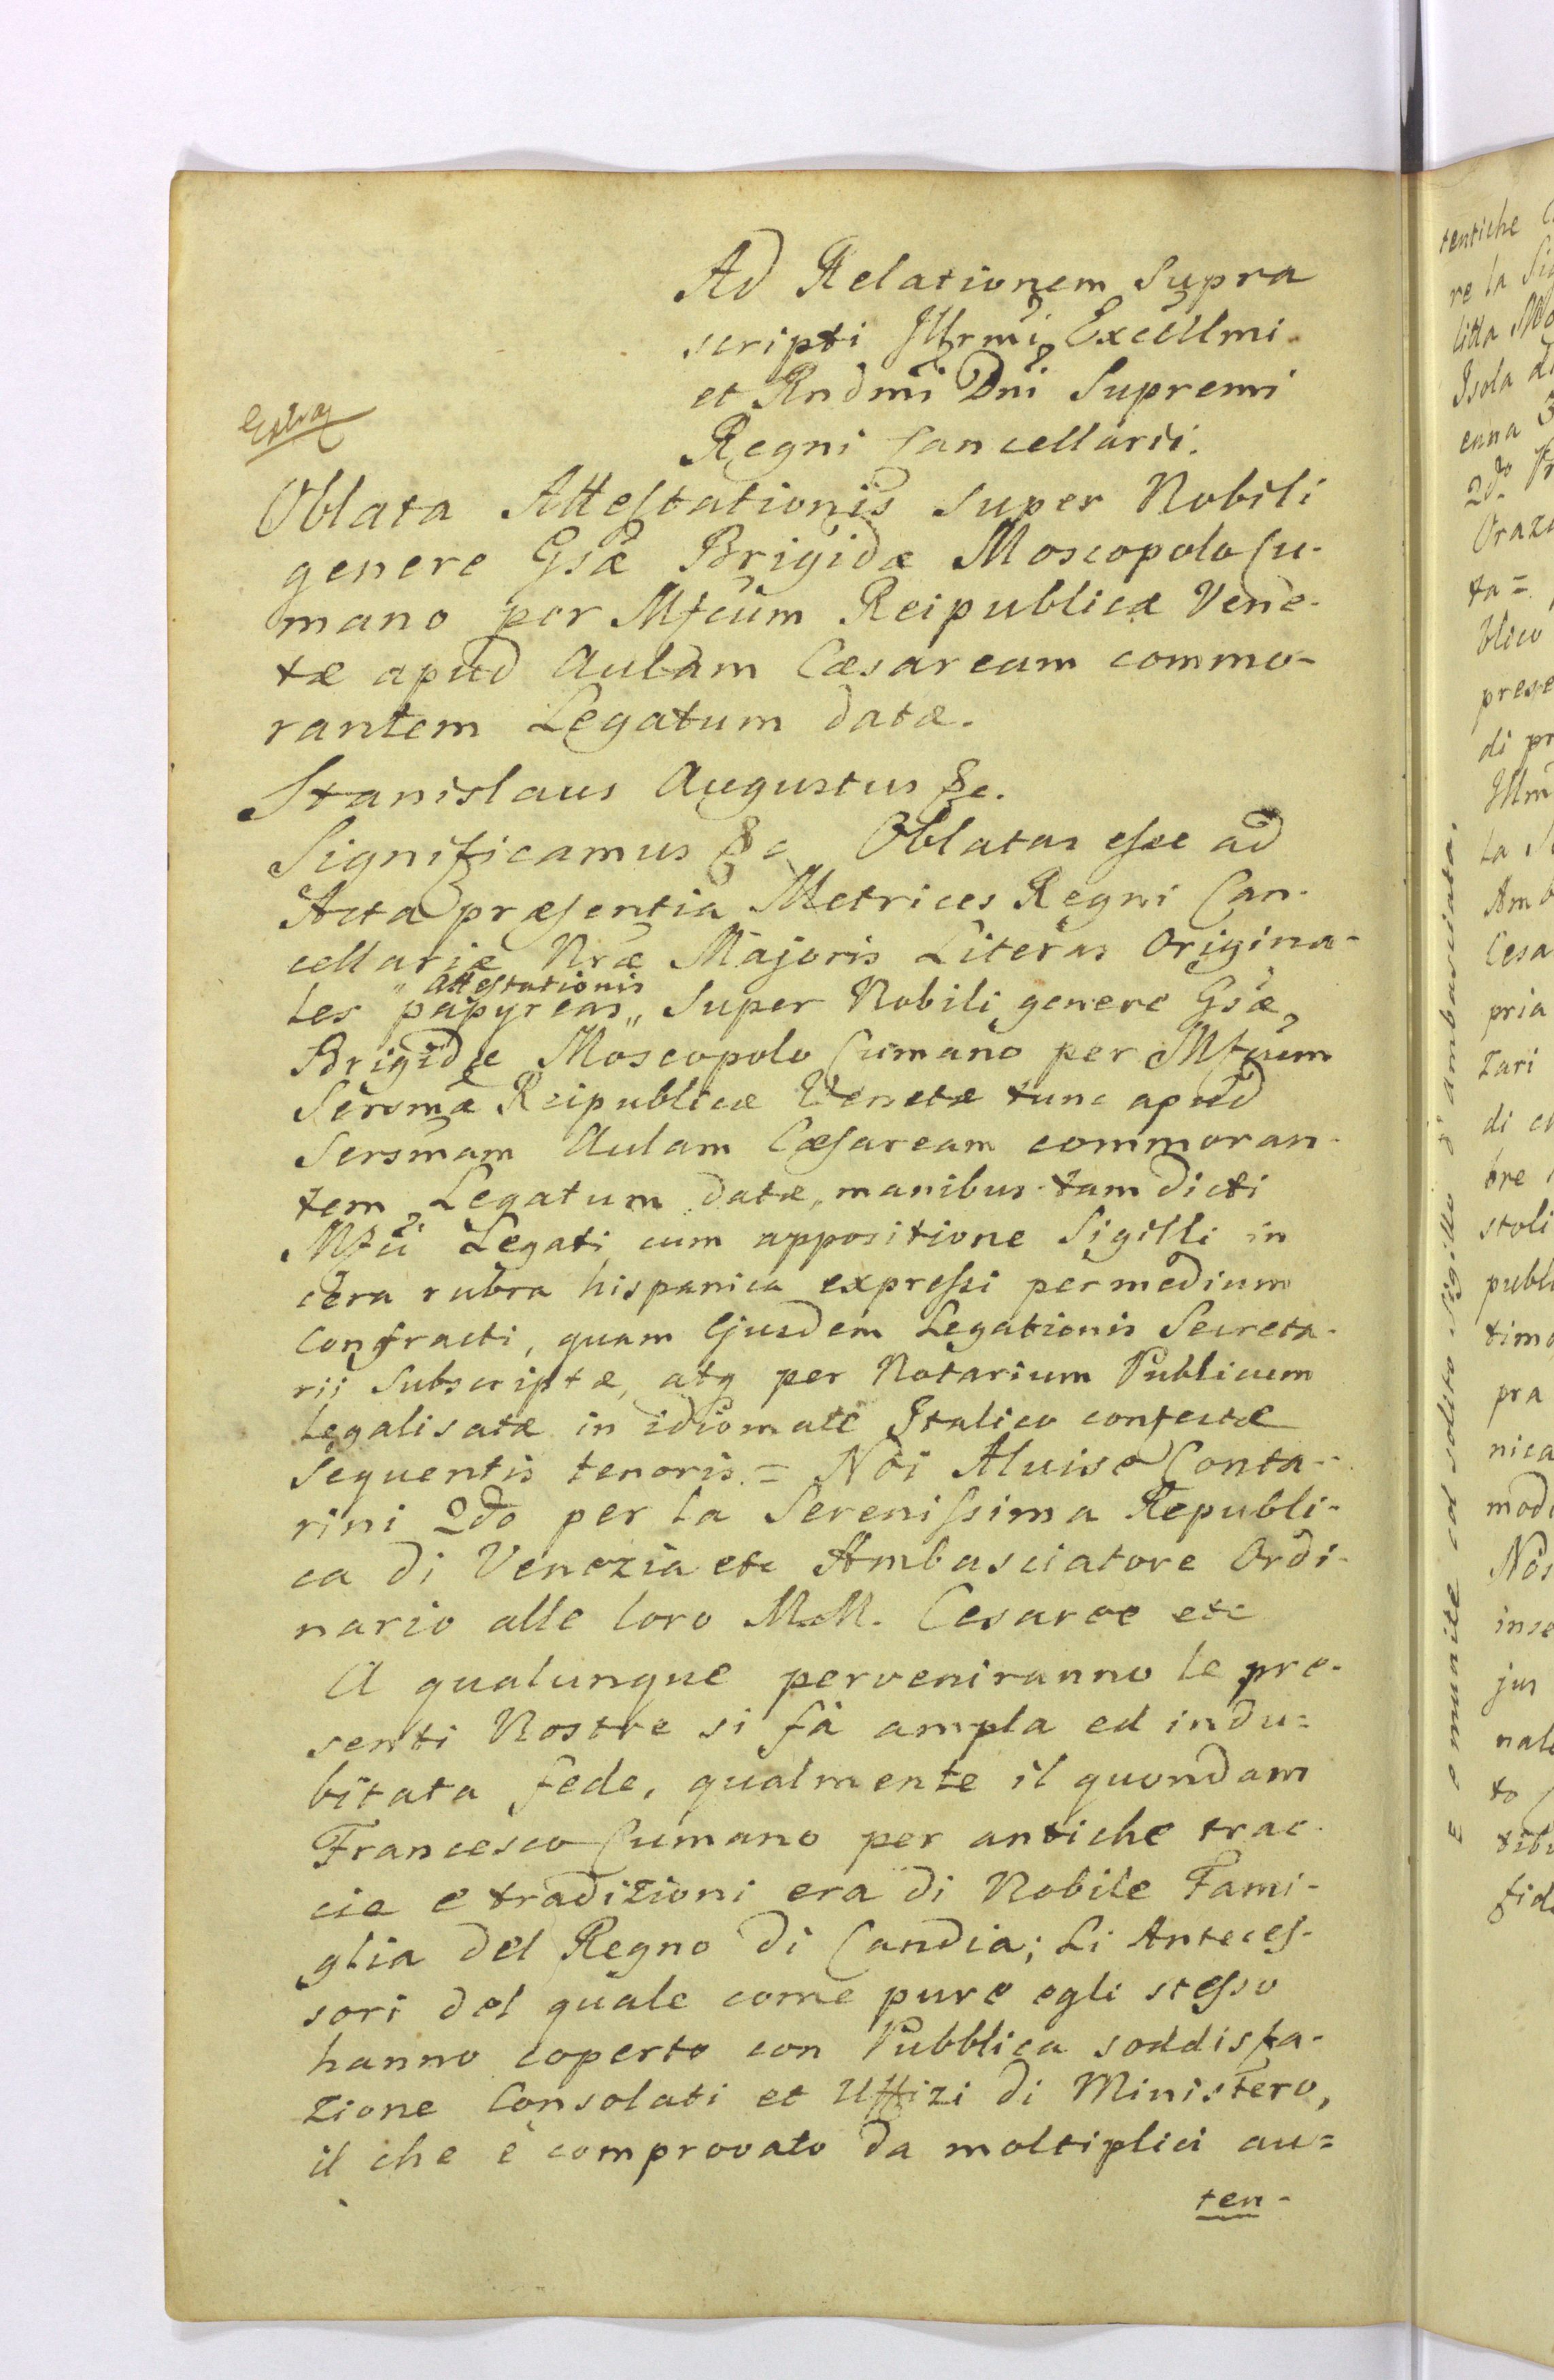 Ad Relationem Supra
scripti Illrmi Excellmi
et Rndmi Dni Supremi
Regni Cancellarii.
Oblata Attestationis super Nobili
genere Gsæ Brigidæ Moscopolo Cu-
mano per Mfcum Reipublicæ Vene-
tæ apud Aulam Cæsaream commo-
rantem Legatum datæ.
Stanislaus Augustus &c.
Significamus &c Oblatas esse ad
Acta præsentia Metrices Regni Can-
cellariæ Nræ Majoris Literas Origina-
les papyreas „ Attestationis „ Super Nobili genere Gsæ
Brigidæ Moscopolo Cumano per Mfcum
Sersmæ Reipublicæ Venetæ tunc apud
Sersmam Aulam Cæsaream commoran-
tem Legatum datæ, manibus tam dicti
Mfci Legati cum appositione Sigilli in
cera rubra hispanica expressi per medium
confracti, quam Ejusdem Legationis Secreta-
rii Subscriptæ, atq per Notarium Publicum
Legalisatæ in idiomate Italico confectæ
Sequentis tenoris = Noi Aluise Conta-
rini 2do per la Serenissima Republi-
ca di Venezia etc Ambasciatore Ordi-
nario alle loro M.M. Cesaree etc
A qualunque perveniranno le pre-
senti Nostre si fà ampla ed indu=
bitata fede, qualmente il quondam
Francesco Cumano per antiche trac-
cie e tradizioni era di Nobile Fami-
glia del Regno di Candia; Li Anteces-
sori del quale come pure egli stesso
hanno coperto con Pubblica soddisfa-
zione Consolati et Uffizi di Ministero,
il che è comprovato da moltiplici au=
ten-
tentiche
re la
litta
Isola
enna
2do
ta=
blico
prese
di pr
Illm
la
Amb
Cesa
pria
zari
di
bre
stoli
publ
timo
pra
nica
modo
Nos
inse
jus
nale
to
fid
E munite col solito sigillo d'ambasciata.